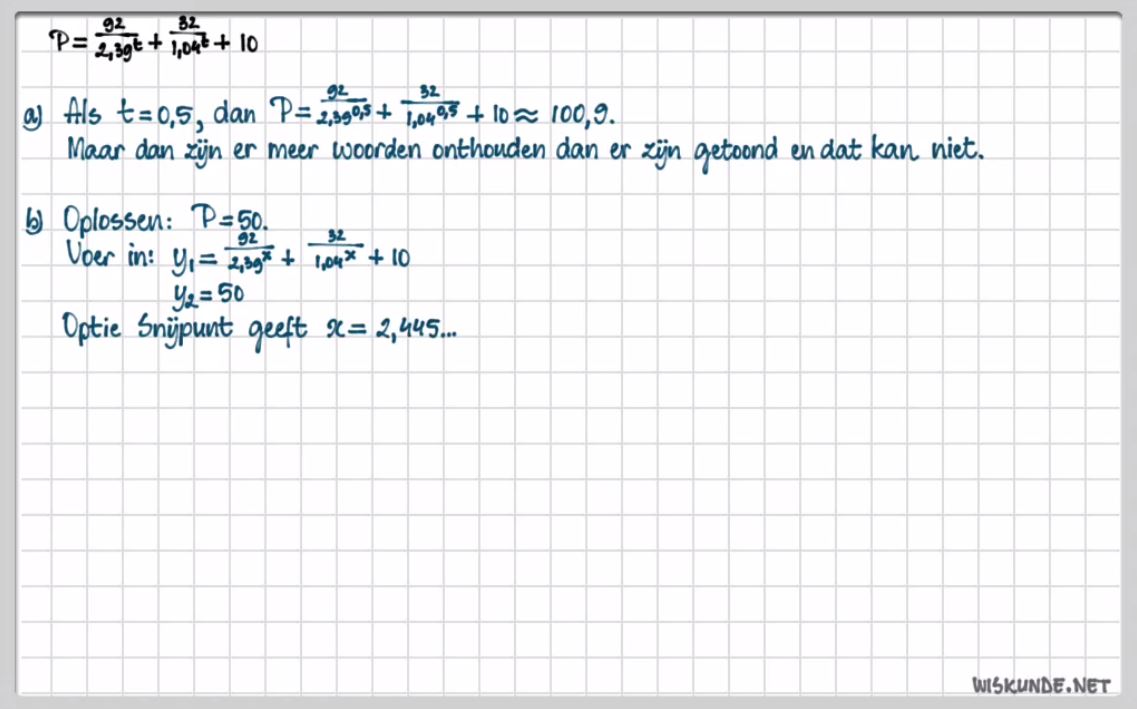 P = 92/2,39^t + 32/1,04^t + 10
a) Als t = 0,5, dan P = 92/2,39^0,5 + 32/1,04^0,5 + 10 ≈ 100,9.
Maar dan zijn er meer woorden onthouden dan er zijn getoond en dat kan niet.
b) Oplossen: P = 50.
Voer in: y₁ = 92/2,39^x + 32/1,04^x + 10
y₂ = 50
Optie Snijpunt geeft x = 2,445...
WISKUNDE.NET